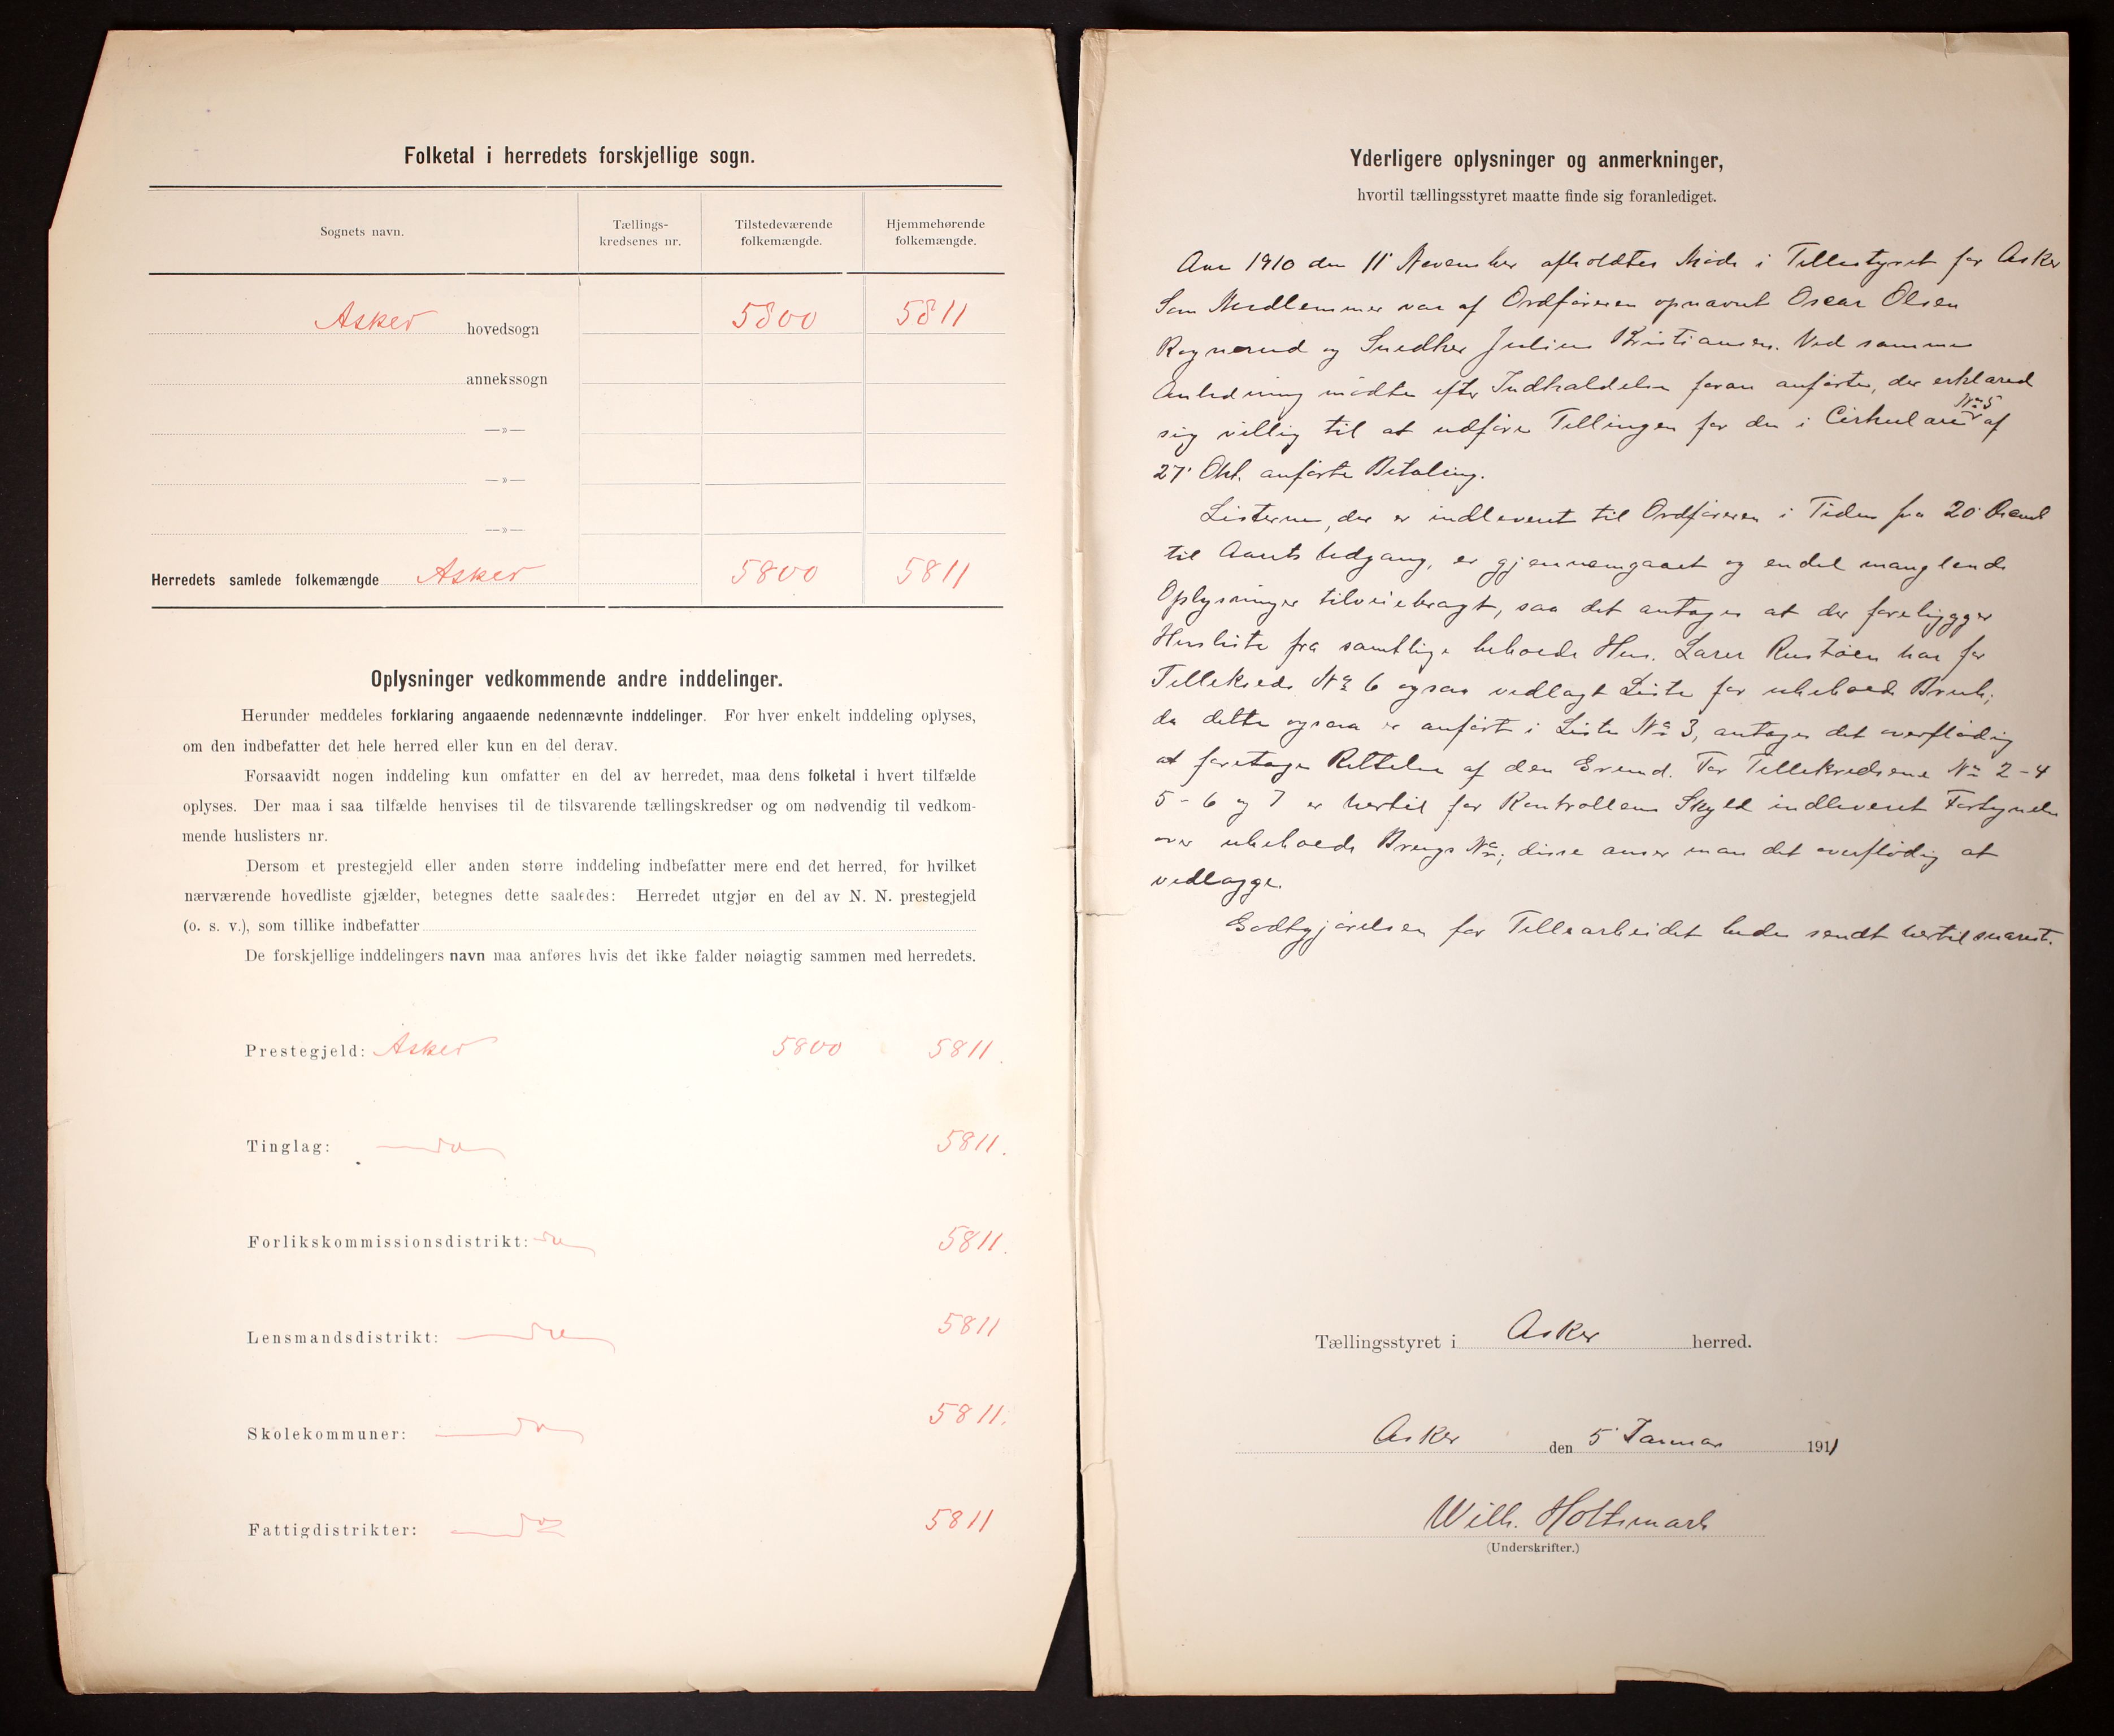 Folketal i herredets forskjellige sogn.
Sognets navn.
Tællings-
kredsenes nr.
Tilstedeværende
folkemængde.
Hjemmehørende
folkemængde.
Asker hovedsogn 5800 5811
annekssogn
—»—
—»—
—»—
Herredets samlede folkemængde Asker 5800 5811
Oplysninger vedkommende andre inddelinger.
Herunder meddeles forklaring angaaende nedennævnte inddelinger. For hver enkelt inddeling oplyses,
om den indbefatter det hele herred eller kun en del derav.
Forsaavidt nogen inddeling kun omfatter en del av herredet, maa dens folketal i hvert tilfælde
oplyses. Der maa i saa tilfælde henvises til de tilsvarende tællingskredser og om nødvendig til vedkom-
mende huslisters nr.
Dersom et prestegjeld eller anden større inddeling indbefatter mere end det herred, for hvilket
nærværende hovedliste gjælder, betegnes dette saaledes: Herredet utgjør en del av N. N. prestegjeld
(o. s. v.), som tillike indbefatter
De forskjellige inddelingers navn maa anføres hvis det ikke falder nøiagtig sammen med herredets.
Prestegjeld: Asker 5800 5811.
Tinglag: — do 5811.
Forlikskommissionsdistrikt: do 5811.
Lensmandsdistrikt: — do 5811
Skolekommuner: — do 5811.
Fattigdistrikter: — do 5811
Yderligere oplysninger og anmerkninger,
hvortil tællingsstyret maatte finde sig foranlediget.
Aar 1910 den 11' November afholdtes Møde i Tellestyret for Asker
Som Medlemmer var af Ordføreren opnævnt Oscar Olsen
Rognerud og Snedker Julius Kristiansen. Ved samme
Anledning mødte efter Indkaldelse foran anførte, der erklæred
sig villig til at udføre Tellingen for den i Cirkulære No 5 af
27' Okt. anførte Betaling.
Listerne, der er indleveret til Ordføreren i Tiden fra 20'
til Aarets Udgang, er gjennemgaaet og endel manglende
Oplysninger tilveiebragt, saa det antages at der foreligger
Husliste fra samtlige beboede Hus. Larer Rustøen har for
Tellekreds No 6 ogsaa vedlagt Liste for ubeboede Bruk;
da dette ogsaa er anført i Liste No 3, antages det overflødig
at foretage Rettelse af den Grund. For Tellekredsene No 2-4
5-6 og 7 er hertil for Kontrollens Skyld indleveret Fortegnelse
over ubeboede Brugs No; disse anser man det overflødig at
vedlægge.
Godtgjørelsen for Tellearbeidet bedes sendt hertil snarest.
Tællingsstyret i Asker herred.
Asker den 5' Januar 1911
Wilh. Holtsmark
(Underskrifter.)